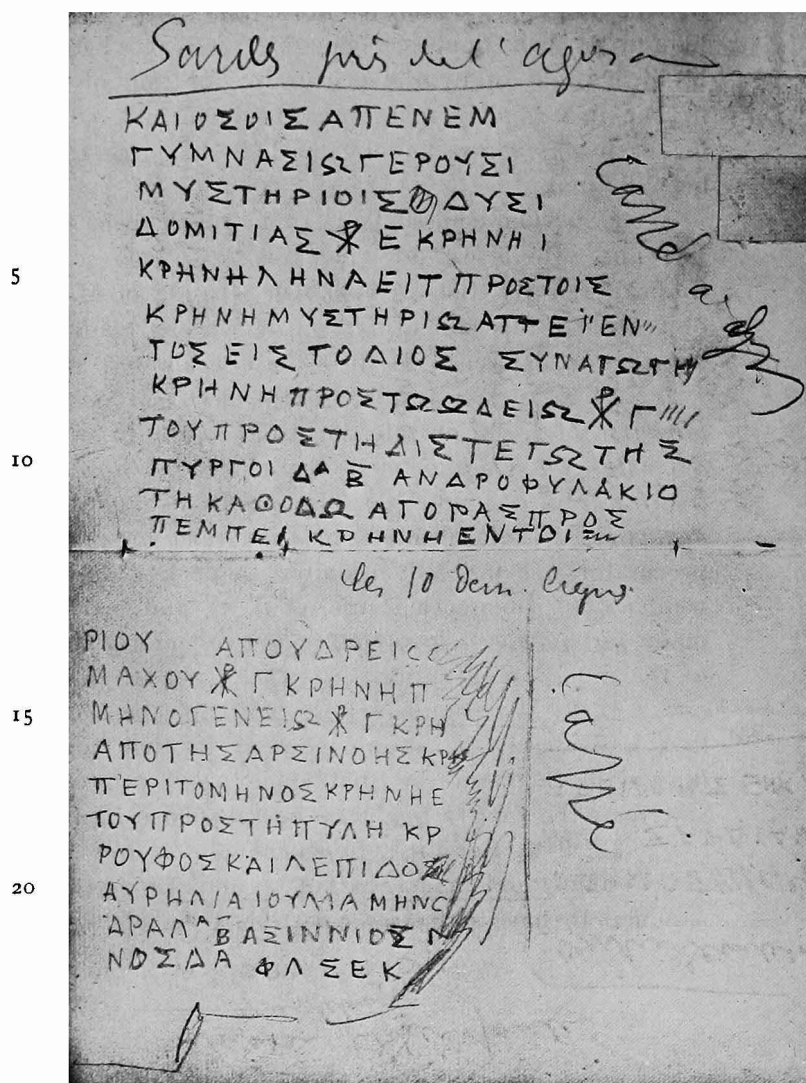 Sardes près de l'agora
ΚΑΙΟΣΟΙΣΑΠΕΝΕΜ
ΓΥΜΝΑΣΙΩΓΕΡΟΥΣΙ
ΜΥΣΤΗΡΙΟΙΣ ΔΥΣΙ
ΔΟΜΙΤΙΑΣ ☧ ΕΚΡΗΝΗΙ
5 ΚΡΗΝΗΛΗΝΑΕΙΤΠΡΟΣΤΟΙΣ
ΚΡΗΝΗΜΥΣΤΗΡΙΩΑΤΤΕΙΕΝ
ΤΟΣΕΙΣΤΟΔΙΟΣ ΣΥΝΑΓΩΓΗ
ΚΡΗΝΗΠΡΟΣΤΩΩΔΕΙΩ ☧ Γ
ΤΟΥΠΡΟΣΤΗΔΙΣΤΕΓΩΤΗΣ
10 ΠΥΡΓΟΙΔΑ Β ΑΝΔΡΟΦΥΛΑΚΙΟ
ΤΗΚΑΘΟΔΩ ΑΓΟΡΑΣΠΡΟΣ
ΠΕΜΠΕΙ ΚΡΗΝΗΕΝΤΟΙΣ
les 10 dern. lignes
ΡΙΟΥ ΑΠΟΥΔΡΕΙΟ
ΜΑΧΟΥ ☧ ΓΚΡΗΝΗΠ
15 ΜΗΝΟΓΕΝΕΙΩ ☧ ΓΚΡΗ
ΑΠΟΤΗΣΑΡΣΙΝΟΗΣΚΡΗ
ΠΕΡΙΤΟΜΗΝΟΣΚΡΗΝΗΕ
ΤΟΥΠΡΟΣΤΗΠΥΛΗ ΚΡ
ΡΟΥΦΟΣΚΑΙΛΕΠΙΔΟΣ
20 ΑΥΡΗΛΙΑΙΟΥΛΙΑΜΗΝΟ
ΑΡΑΛΑ ΒΑΣΙΝΝΙΟΣΝ
ΝΟΣΔΑ ΦΛΣΕΚ
cassé